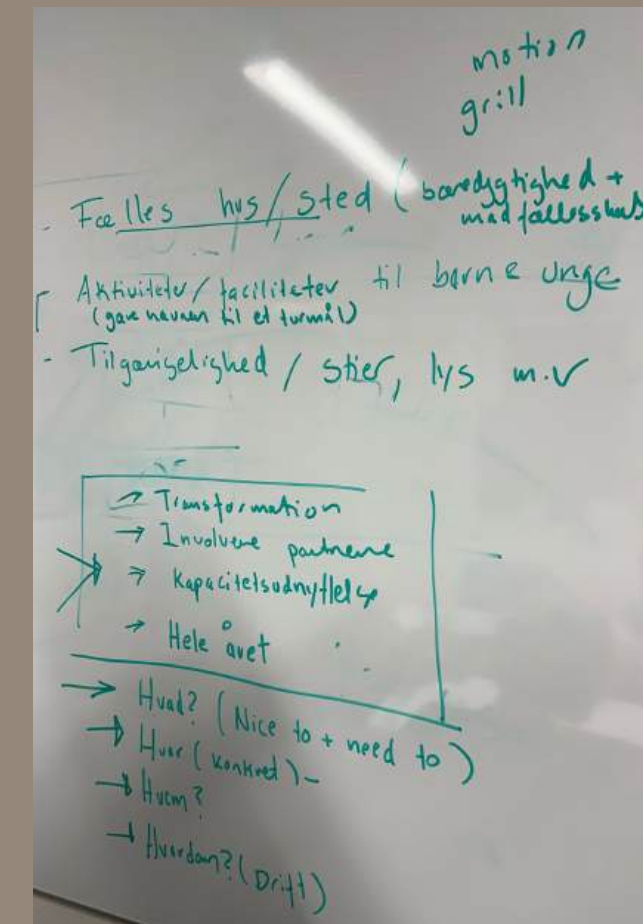 motion
grill
- Fælles hus/sted (baredygtighed +
mad fællesshus
- Aktiviteter/faciliteter til børn & unge
(gøre havnen til et turmål)
- Tilgængelighed / stier, lys m.v
→ Transformation
→ Involvere partnere
→ Kapacitetsudnyttelse
→ Hele året
→ Hvad? (Nice to + need to)
→ Hvor (konkret) -
→ Hvem?
→ Hvordan? (Drift)